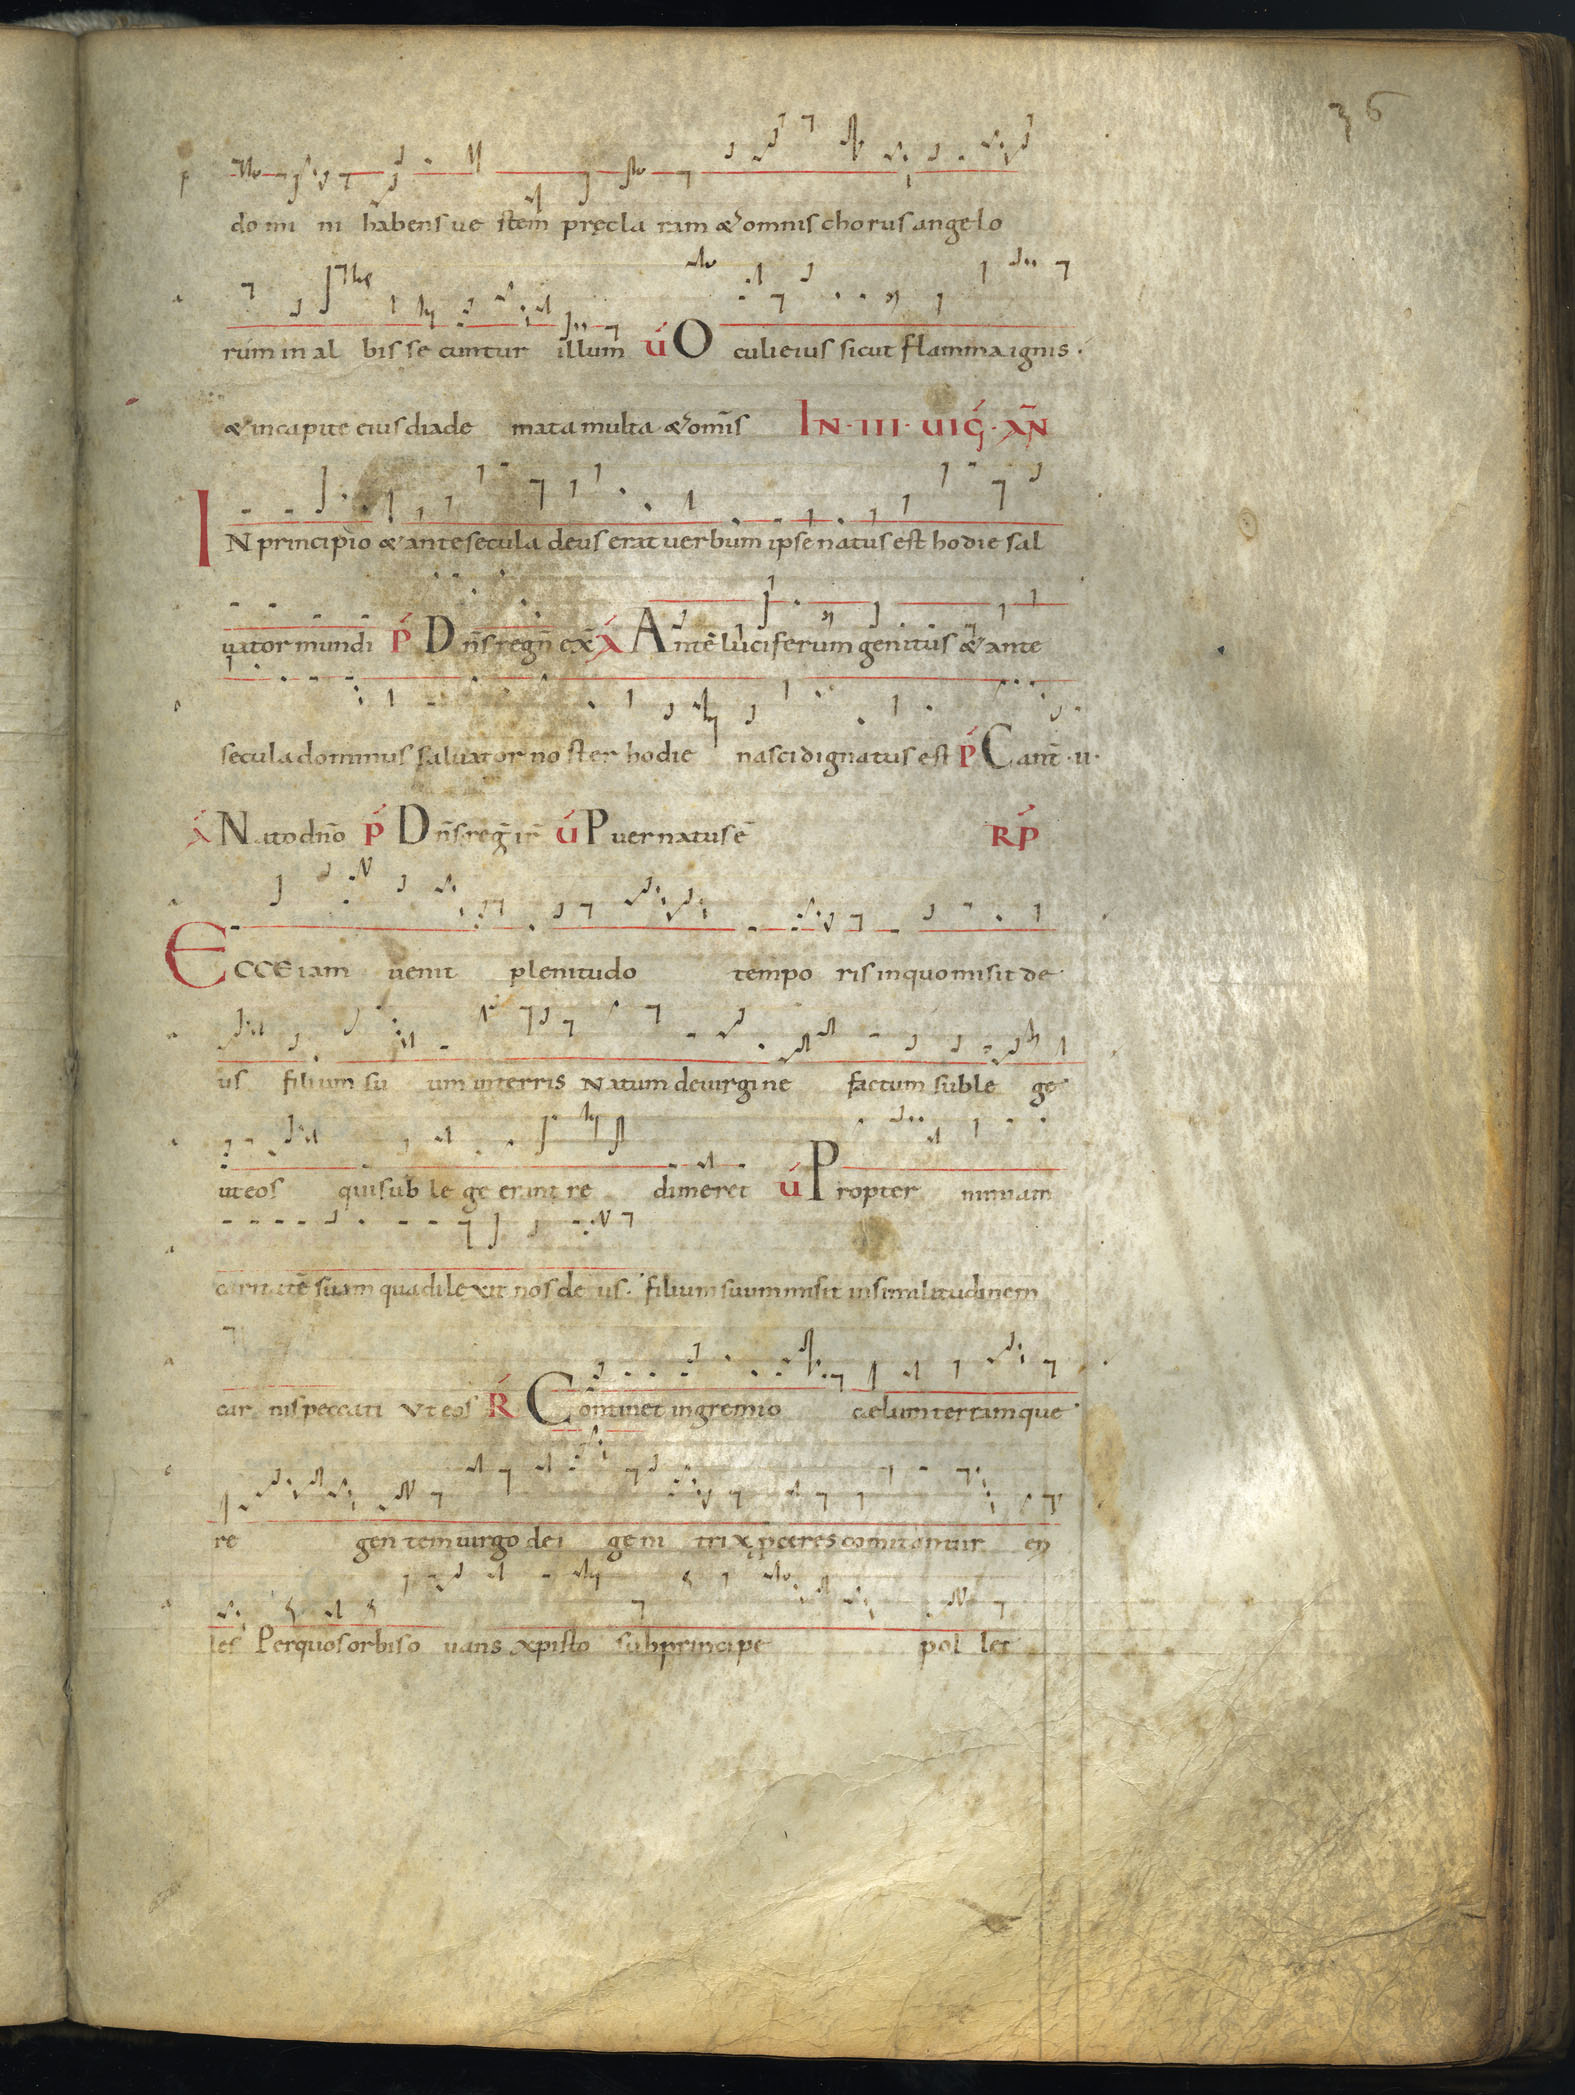 36
do mi ni habens ue stem̄ pręcla ram & omnis chorus angelo
rum in al bis se cuntur illum ℣ O culi eius sicut flamma ignis.
& in capite eius diade mata multa & om̄s IN·III·UIḠ·AÑ
IN principio & ante secula deus erat uerbum ipse natus est hodie sal
uator mundi P̄ Dn̄s regn̄ ex̄ A Ante luciferum genitus & ante
secula dominus saluator no ster hodie nasci dignatus est P̄ Cant̄·u·
A Nato dn̄o P̄ Dn̄s reḡ ir̄ ℣ Puer natus ē RP
ECCE iam uenit plenitudo tempo ris in quo misit de
us filium su um in terris Natum de uirgine factum sub le ge
ut eos qui sub le ge erant re dimeret ℣ Propter nimiam
caritatē suam qua dilexit nos de us. filium suum misit in similitudinem
car nis peccati Vt eos ℟ Continet in gremio cælum terramque
re gen tem uirgo dei geni trix, pceres comitantur en
ses Per quos orbis o uans xpisto sub principe pol let